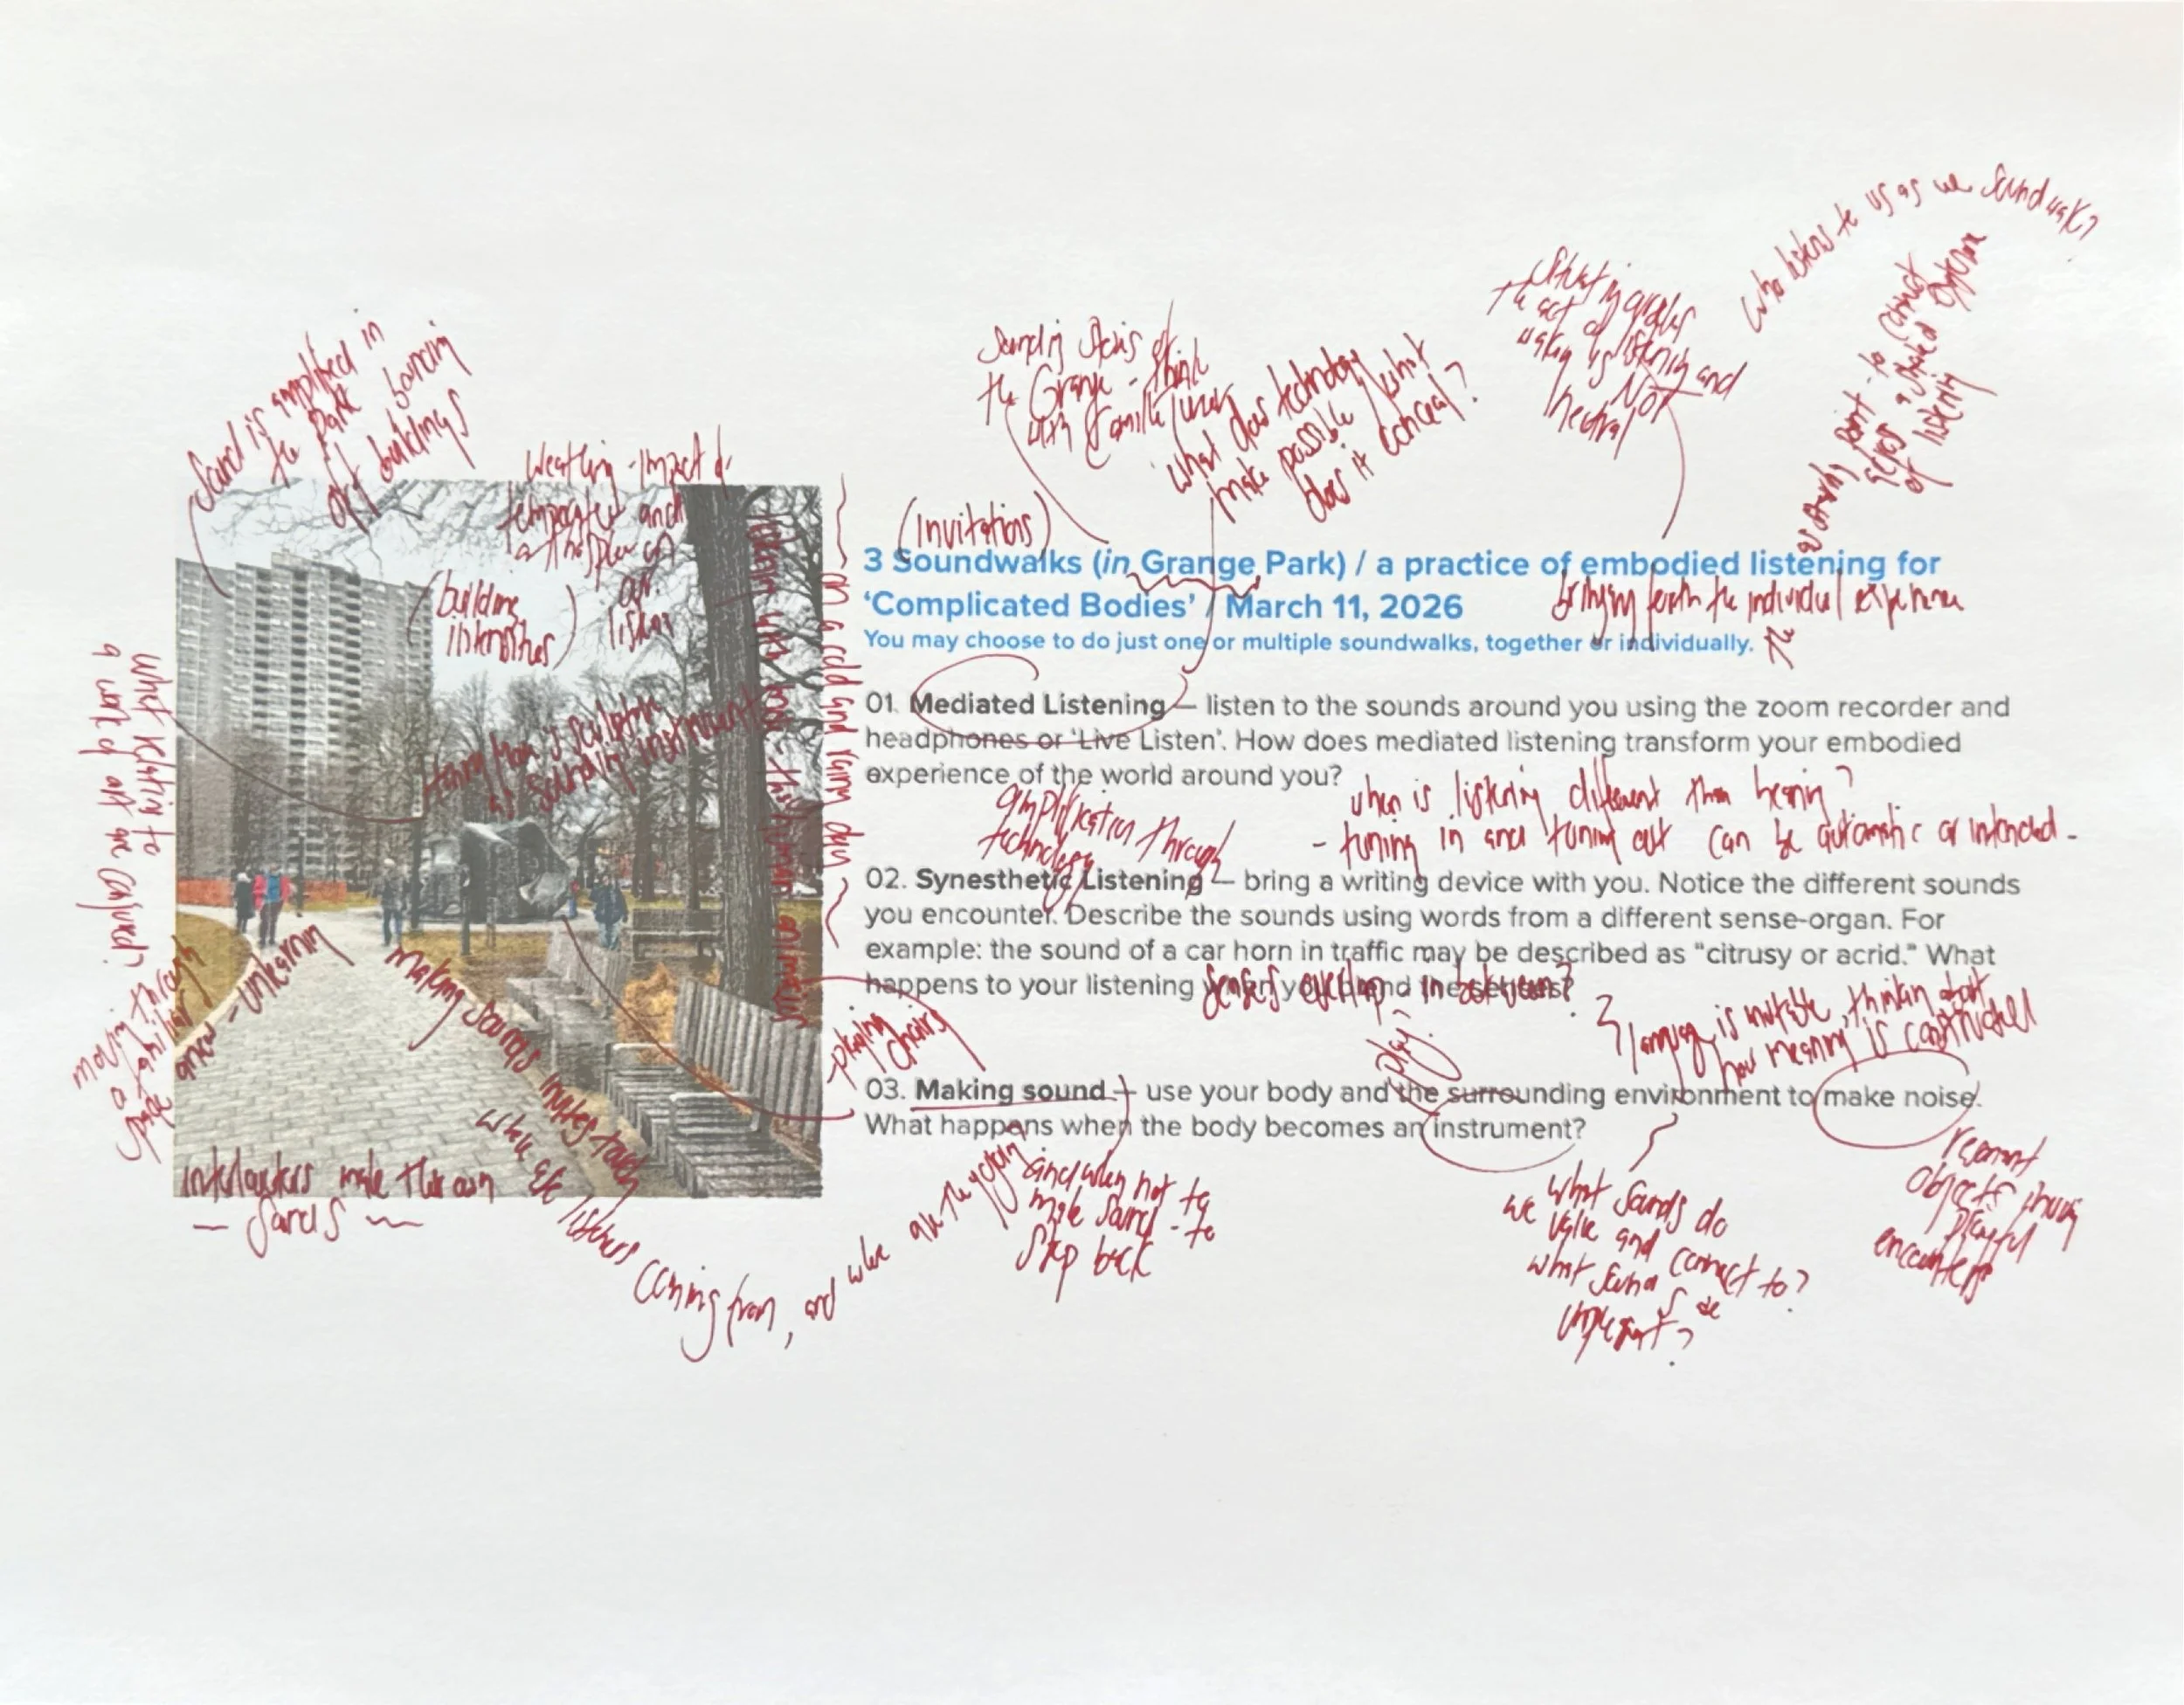 who listens to us as we soundwalk?
the act of
walking is listening and
Not
neutral
to connect
across a shared
of listening
Sound is amplified in
the park bouncing
off buildings
the Grange - think
with Camille Turner
what does technology
make possible what
does it conceal?
Weathering - impact of
temperature and
atmosphere on
our
(building
intensities)
(Invitations)
3 Soundwalks (in Grange Park) / a practice of embodied listening for
‘Complicated Bodies’ / March 11, 2026
bringing forth the individual experience
You may choose to do just one or multiple soundwalks, together or individually.
on a cold and rainy day
what relating to
a work of art are
Henry Moore's sculpture
as sounding instrument
01. Mediated Listening — listen to the sounds around you using the zoom recorder and
headphones or ‘Live Listen’. How does mediated listening transform your embodied
experience of the world around you?
amplification through
technology
when is listening different than hearing?
- tuning in and tuning out can be automatic or intended -
02. Synesthetic Listening — bring a writing device with you. Notice the different sounds
you encounter. Describe the sounds using words from a different sense-organ. For
example: the sound of a car horn in traffic may be described as “citrusy or acrid.” What
happens to your listening when you blend the senses?
senses overlap - in between?
language is mutable, thinking about
how meaning is constructed
moving through
a familiar
space anew - unlearning
making sounds invites touch
playing
chairs
(play)
03. Making sound — use your body and the surrounding environment to make noise.
What happens when the body becomes an instrument?
interlockers make their own
- sounds -
where are listeners coming from, and where are they going
and when not to
make sound - to
step back
what sounds do
we value and connect to?
what sounds are
unpleasant?
objects
playful
encounters